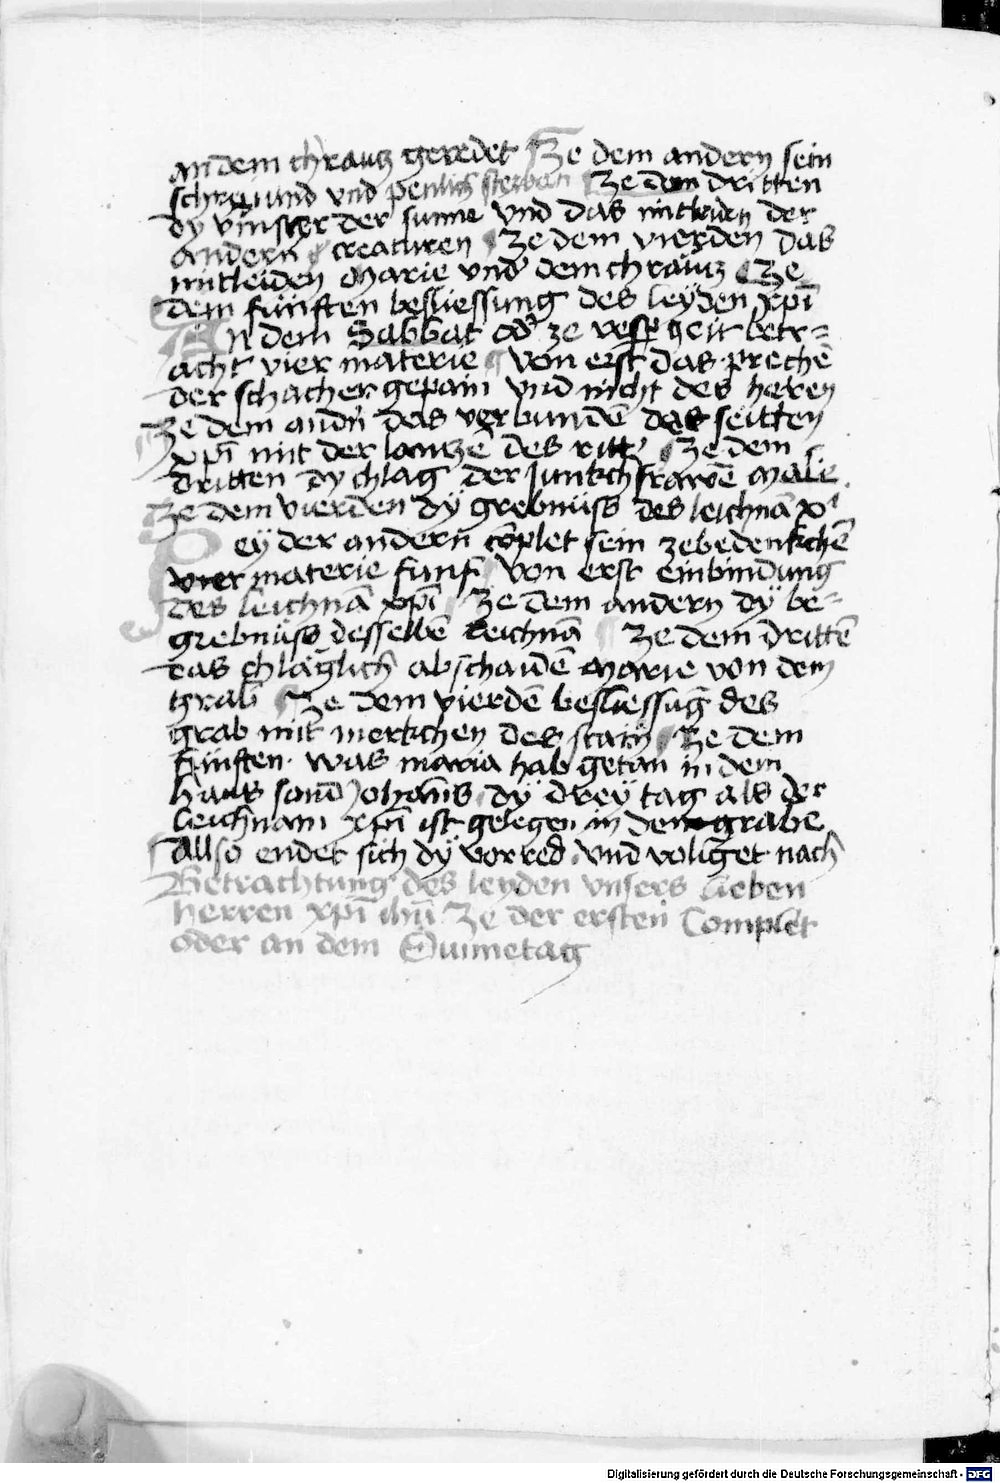 an dem chrautz geredet Ze dem andern sein
schreyund vnd penlich sterben Ze dem dritten
dy vinster der sunne vnd das mitleiden der
andern creaturen Ze dem vierden das
mitleiden Marie vnd dem chrautz Ze
dem fünften besliessung des leyden xp̄i
An dem Sabbat od' ze vesp zeit betr=
acht vier materie von erst das prechē
der schacher gepain vnd nicht des heren
Ze dem andn̄ das verbundē der seitten
xp̄i mit der lantzē des ritt' Ze dem
dritten dy chlag der Junkchfrawē
Ze dem vierden dÿ grebnüss des leichnā xp̄i
Bey der andern cōplet sein zebedenkchē
materie funf von erst einbindung
des leichnā xp̄i Ze dem andern dÿ be=
grebnüss desselbē leichnā Ze dem drittē
das chläglich abschaidē Marie von dem
grab Ze dem vierdē besliessūg des
grab mit merkchen des stain Ze dem
fünften was maria hab getan in dem
haus sand Johān̄s dÿ drey tag als der
leichnam xp̄i ist gelegen in dem grabe
Allso endet sich dÿ vorred vnd volget nach
Betrachtung des leyden vnsers lieben
herren xp̄i ihū Ze der ersten Complet
oder an dem